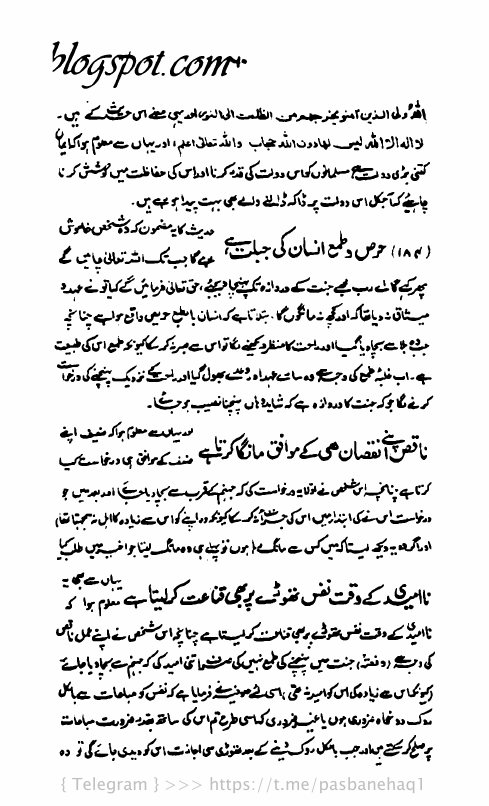 blogspot.com
اللہ ولی الذین آمنوا یخرجہم من الظلمت الی النور اور یہی معنے اس حدیث کے ہیں۔
لا الہ الا اللہ لیس لہا دون اللہ حجاب واللہ تعالیٰ اعلم، اور یہاں سے معلوم ہوا کہ ایمان
کتنی بڑی دولت ہے مسلمانوں کو اس دولت کی قدر کرنا اور اس کی حفاظت میں کوشش کرنا
چاہئے کہ آجکل اس دولت پر ڈاکہ ڈالنے والے بھی بہت پیدا ہو گئے ہیں۔
(۱۸۴) حرص و طمع انسان کی جبلت ہے
حدیث کا یہ مضمون کہ وہ شخص خاموش
رہے گا جب تک اللہ تعالیٰ چاہیں گے
پھر کہے گا اے رب مجھے جنت کے دروازہ تک پہنچا دیجئے، حق تعالیٰ فرمائیں گے کیا تو نے عہد و
میثاق نہ دیا تھا کہ اور کچھ نہ مانگوں گا۔ بتلاتا ہے کہ انسان بالطبع حریص واقع ہوا ہے چنانچہ
جنت کا منظر دیکھنے لگا تو اس سے صبر نہ کر سکا کیونکہ طمع اس کی طبیعت
ہے۔ اب غلبۂ طمع کی وجہ سے وہ سات عہد اور وعدے بھول گیا اور اس کے نزدیک پہنچنے کی درخواست
کرنے لگا جو کہ جنت کا دروازہ ہے کہ شاید وہاں پہنچنا نصیب ہو جائے۔
ناقص اپنے نقصان ہی کے موافق مانگا کرتا ہے
اور یہاں سے معلوم ہوا کہ ضعیف اپنے
ضعف کے موافق ہی درخواست کیا
کرتا ہے چنانچہ اس شخص نے اولاً یہ درخواست کی کہ جہنم کے قرب سے بچا دیا جائے اور بعد میں جو
درخواست اس نے کی ابتدا میں اس کی جرأت نہ کر سکا کیونکہ وہ اپنے کو اس سے زیادہ کا اہل نہ سمجھتا تھا
اور اگر وہ یہ دیکھ لیتا کہ میں کس سے مانگ رہا ہوں تو پہلے ہی وہ مانگ لیتا جو اخیر میں طلب کیا
ناامیدی کے وقت نفس تھوڑے پر بھی قناعت کر لیتا ہے
یہاں سے بھی یہ
معلوم ہوا کہ
ناامیدی کے وقت نفس تھوڑے پر بھی قناعت کر لیتا ہے چنانچہ اس شخص نے اپنے عمل ناقص
کی وجہ سے (دفعۃً) جنت میں پہنچنے کی طمع نہیں کی صرف اتنی امید کی کہ جہنم سے بچا دیا جائے
کیونکہ اس سے زیادہ کی اس کو امید نہ تھی، اسی لئے صوفیہ نے فرمایا ہے کہ نفس کو مباحات سے بالکل
روک دو خواہ ضروری ہوں یا غیر ضروری کہ اسی طرح تم اس کی ساتھ بقدر ضرورت مباحات
پر صلح کر سکتے ہو اور جب بالکل روک دینے کے بعد تھوڑی سی اجازت اس کو دیدی جائے گی تو وہ
{ Telegram } >>> https://t.me/pasbanehaq1